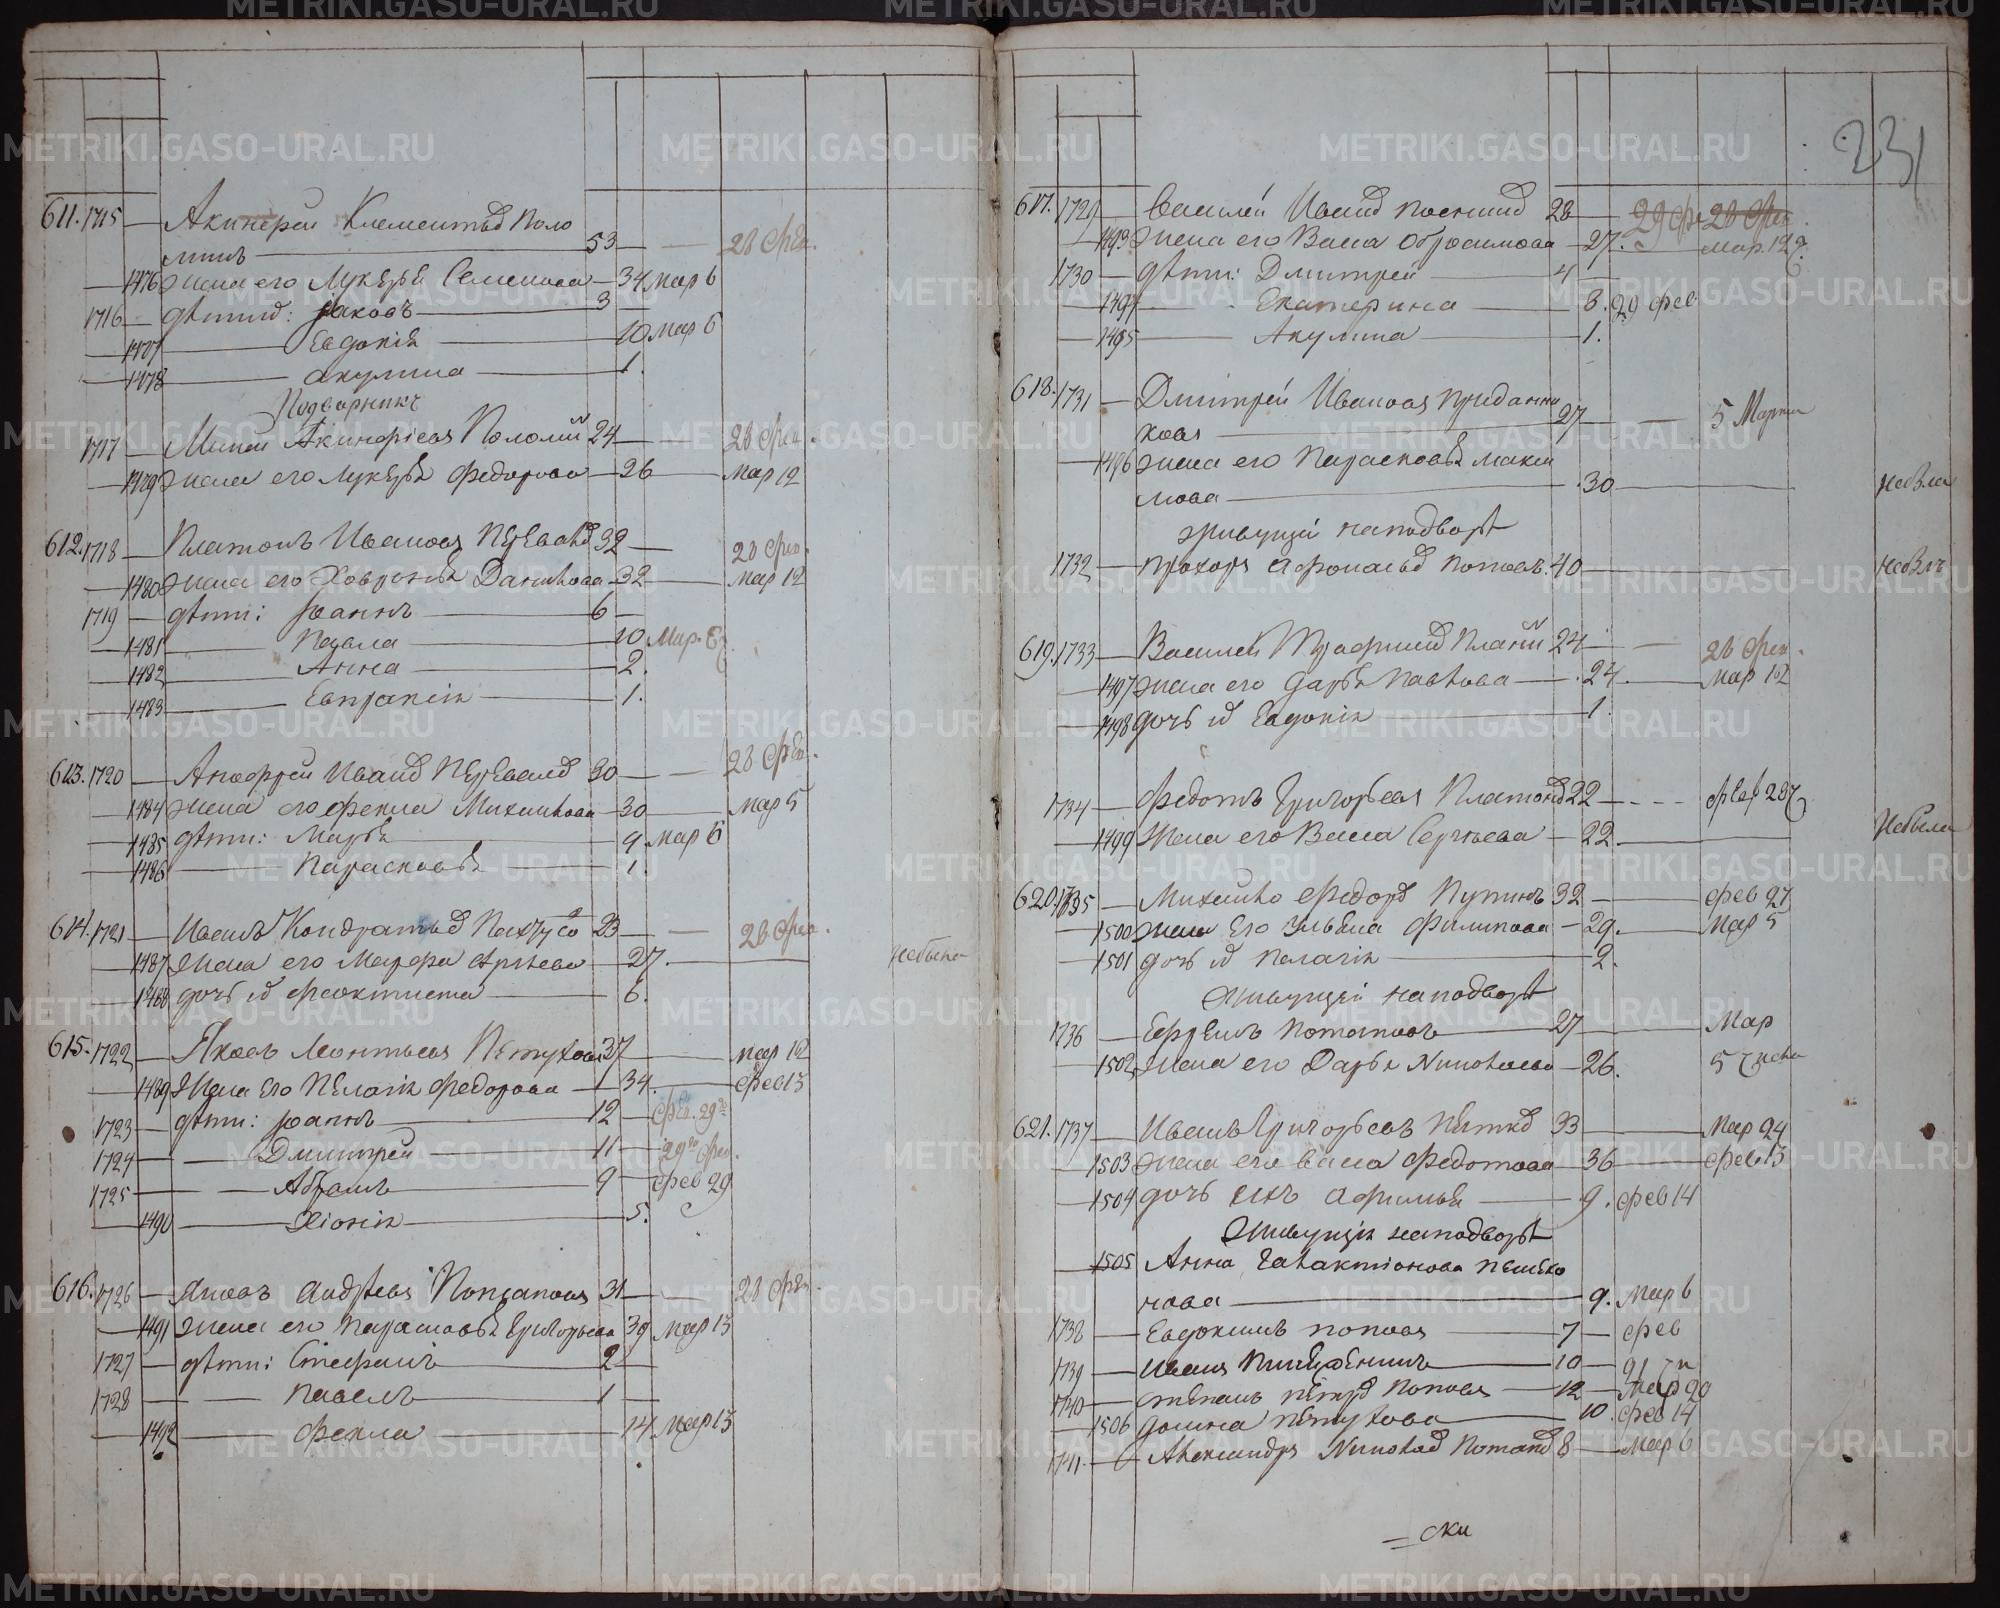 611. 1715 — Акинфей Климентьевъ Поло
минъ — 53 — — 28 Фев.
— 1476 жена его Лукерья Семенова — 34 Мар 6
1716 — дѣти ихъ: Іаковъ — 3 —
— 1477 — Евдокія — 10 Мар 6
— 1478 — Акулина — 1.
Подворникъ
1717 — Миней Акинфіевъ Поломин 24 — — 28 Фев.
— 1479 жена его Лукерья Федорова — 26 — Мар 12
612. 1718 — Платонъ Ивановъ 32 — 28 Фев.
— 1480 жена его Ховронья Данилова — 32 — Мар 12
1719 — дѣти: Іоаннъ — 6 —
— 1481 — Павла — 10 Мар. 6
— 1482 — Анна — 2.
— 1483 — Евпраксія — 1.
613. 1720 — Иванов 30 — — 28 Фев.
— 1484 жена его Фекла Михаилова — 30 — Мар 5
— 1485 дѣти: Марья — 9 Мар 6
— 1486 — Парасковья — 1.
614. 1721 — Иванъ Кондратьев 23 — — 28 Фев.
— 1487 Жена его Марфа — 27. — небыла
— 1488 дочь их Феоктиста — 6.
615. 1722 — Яковъ Леонтьевъ Петуховъ 37 — Мар 12
— 1489 Жена его Пелагія Федорова — 34. — Фев 13
1723 — дѣти: Іоаннъ — 12 — Фев. 29го
1724 — — Дмитрей — 11 — 29го Фев.
1725 — — Абрамъ — 9 — Фев 29
— 1490 — Хіонія — 5.
616. 1726 — Яковъ Андрѣевъ 31 — — 28 Фев.
— 1491 жена его Парасковья Григорьева 39 Мар 13
1727 — дѣти: Стефанъ — 2 —
1728 — — Павелъ — 1 —
— 1492 — Фекла — 14 Мар 13
231
617. 1729 — Василей Иванов 28 — 29 Фе 28 Фев.
— 1493 Жена его Васса Абросимова — 27. — Мар. 12
1730 — дѣти: Дмитрей — 4 —
— 1494 — Екатерина — 8. 29 фев
— 1495 — Акулина — 1.
618. 1731 — Дмитрей Ивановъ Приданни
ковъ — 27 — — 5 Марта
— 1496 жена его Парасковья Макси
мова — 30 — небыла
живущей наподворѣ
1732 — Прохоръ Афонасьев Поповъ. 40 — небылъ
619. 1733 — Василей Трафимов 24 — — 28 Фев.
— 1497 жена его Дарья Павлова — 24. — Мар 12
— 1498 дочь их Евдокія — 1.
1734 — Федотъ Григорьевъ Платонов 22 — — Фев 28
— 1499 Жена его Васса Сергѣева — 22. — небыла
620. 1735 — Михайло Федоров Путинъ 32 — фев 27
— 1500 жена Его Ульяна Филипова — 29. — Мар 5
— 1501 дочь их Пелагія — 2.
Живущей наподворѣ
1736 — Ефремъ Потаповъ — 27 — Мар
— 1502 Жена его Дарья Николаева — 26. 5 числа
621. 1737 — Иванъ Григорьевъ 33 — Мар 24
— 1503 жена его Васса Федотова — 36 — Фев 13
— 1504 дочь ихъ Афимья — 9. фев 14
Живущія наподворѣ
— 1505 Анна Галактіонова
нова — 9. Мар 6
1738 — Евдокимъ Поповъ — 7 — фев
1739 — Иванъ — 10 —
1740 — Степанъ Петров Поповъ — 12 — Мар 20
— 1506 Домна Петухова — 10. фев 14
1741. — Александръ Николаев 8 — Мар 6